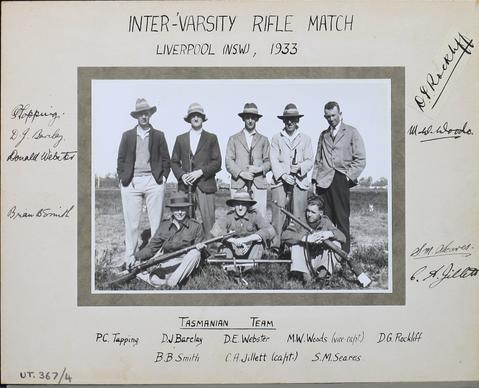 INTER-'VARSITY RIFLE MATCH
LIVERPOOL (NSW), 1933
PTapping.
D.J. Barclay
Donald Webster
Brian B Smith
D.G. Rockliff
M.W. Woods.
S.M. Seares.
C. A. Jillett
TASMANIAN TEAM
P.C. Tapping D.J Barclay D.E. Webster M.W. Woods (vice-capt.) D.G. Rockliff
B.B. Smith C.A. Jillett (capt.) S.M. Seares
UT. 367/4